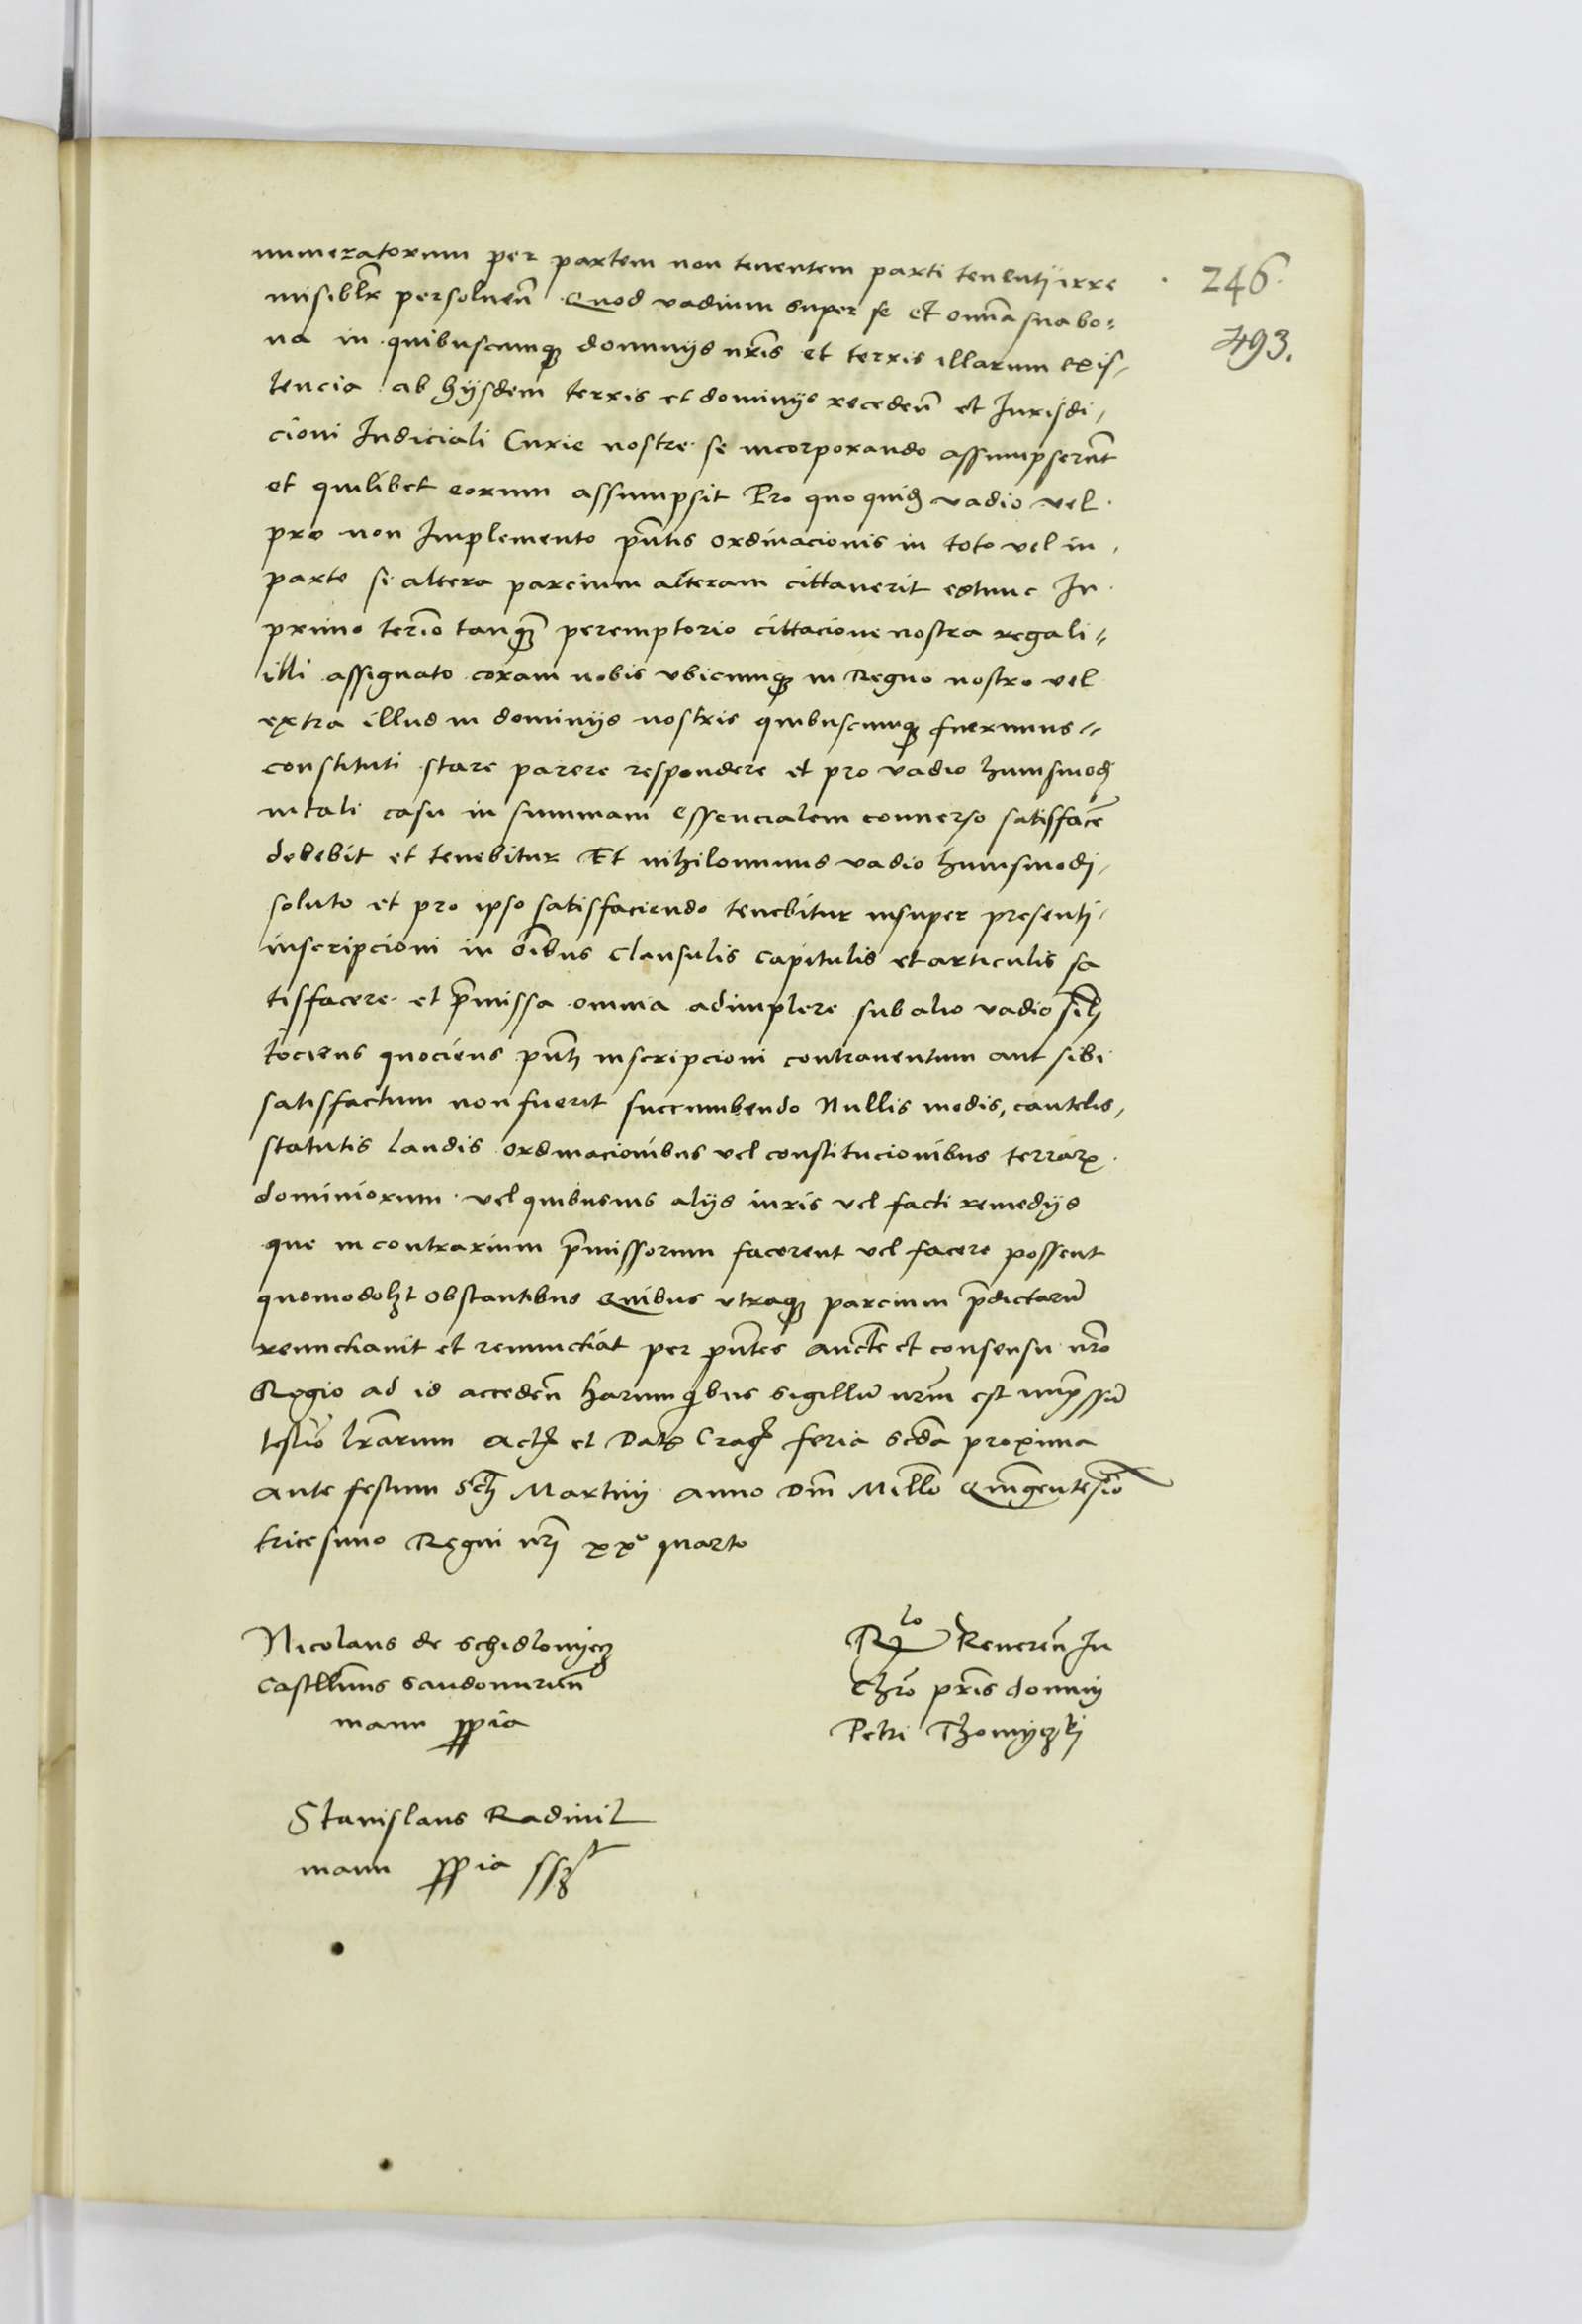 numeratorum per partem non tenentem parti tenentj irre
misiblr persoluen̄ Quod vadium super se et omīa sua bo:
na in quibuscumqz dominijs nr̄is et terris illarum exis-
tencia ab hijsdem terris et dominijs receden̄ et Jurisdi-
cioni Judiciali Curie nostre se incorporando assumpserūt
et quilibet eorum assumpsit Pro quo quid vadio vel
pro non Implemento pn̄tis ordinacionis in toto vel in
parte si altera parcium alteram cittauerit extunc In
primo term̄o tanqz peremptorio cittacione nostra regali
illi assignato coram nobis vbicumqz in Regno nostro vel
extra illud in dominijs nostris quibuscumqz fuerimus
constituti stare parere respondere et pro vadio huiusmodj
in tali casu in summam essencialem conuerso satisfacē
debebit et tenebitur Et nihilominus vadio huiusmodj
soluto et pro ipso satisfaciendo tenebitur insuper presentj
inscripcioni in oībus clausulis capitulis et articulis sa
tisfacere et p̄missa omnia adimplere sub alio vadio sīlj
tociens quociens pn̄tj inscripcioni contrauentum aut sibi
satisfactum non fuerit succumbendo Nullis modis, cautelis,
statutis laudis ordinacionibus vel constitucionibus terrarz
dominiorum vel quibusuis alijs iuris vel facti remedijs
que in contrarium p̄missorum facerent vel facere possent
quomodolzt obstantibus Quibus vtraqz parcium p̄dictarū
renunctiauit et renunctiat per pn̄tes Aucte et consensu nr̄o
Regio ad id acceden̄ harum qbus sigillū nrm̄ est impssū
testīo lr̄arum Actz et Datz Crac feria scda proxima
ante festum Sctj Martinj Anno Dnī Millo Quīgentesīo
tricesimo Regni nrj xxo quarto
Nicolaus de Schidlowyecz
Castellanus Sandomirien̄
manu ppia
Rlo Reueren̄ In
Chro pris dominj
Petri Thomyczkj
Stanislaus Radiuil
manu ppia sszt
246
493.